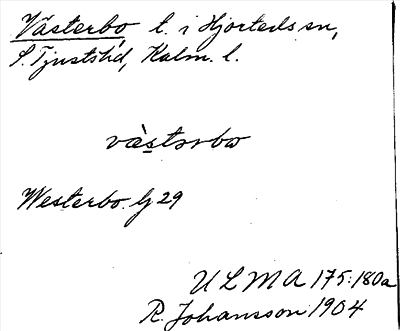 Västerbo t. i Hjorteds sn,
S. Tjusts hd, Kalm. l.
västərbω
Westerbo. G 29
ULMA 175:180a
R. Johansson 1904